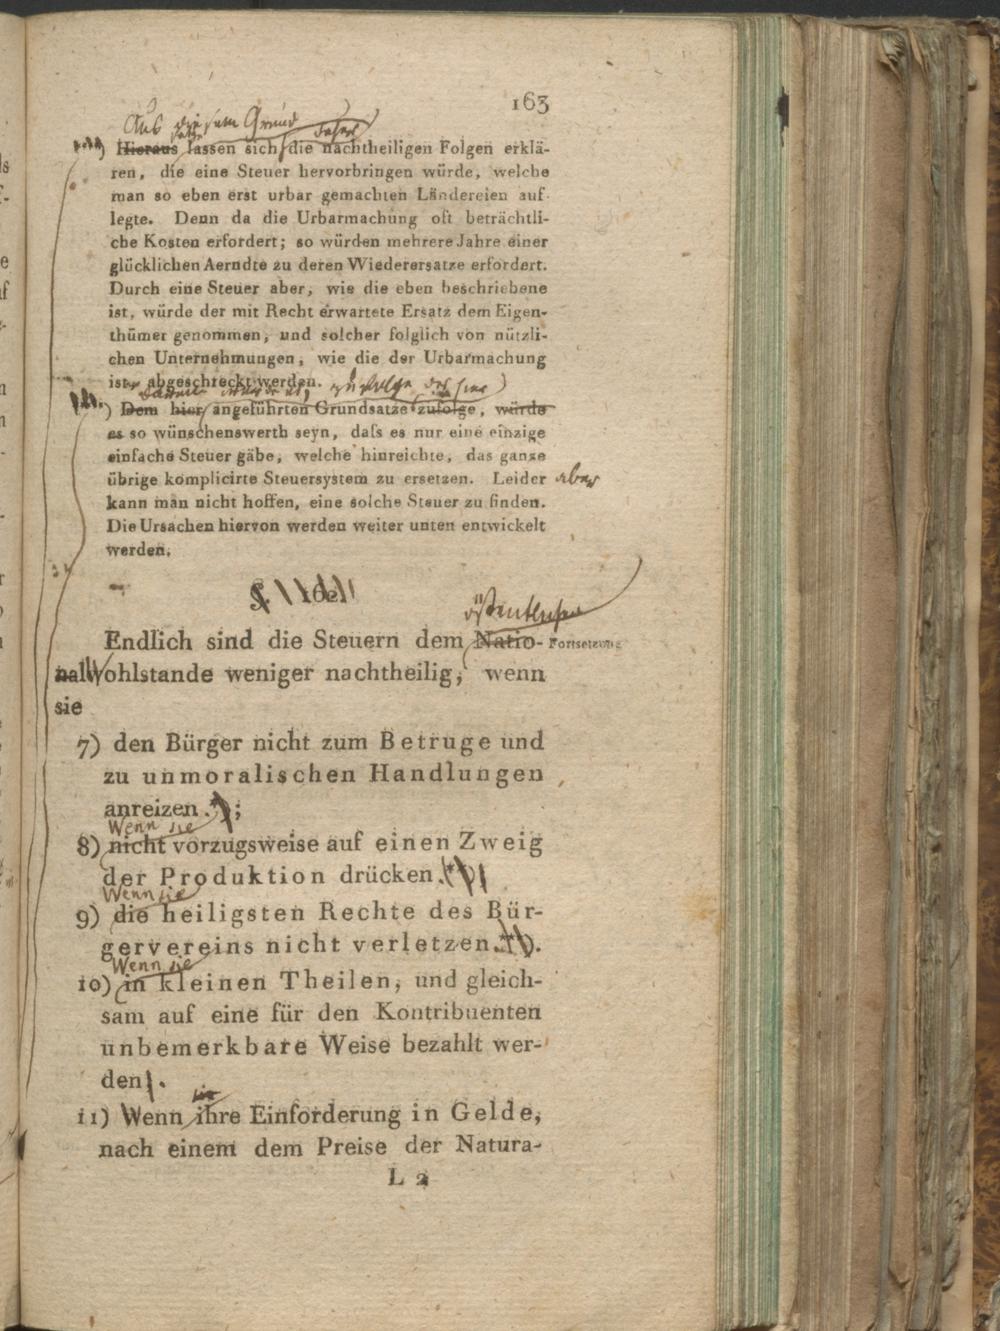 163
Aus diesem Grund
daher
Hieraus lassen sich die nachtheiligen Folgen erklä-
ren, die eine Steuer hervorbringen würde, welche
man so eben erst urbar gemachten Ländereien auf-
legte. Denn da die Urbarmachung oft beträchtli-
che Kosten erfordert; so würden mehrere Jahre einer
glücklichen Aerndte zu deren Wiederersatze erfordert.
Durch eine Steuer aber, wie die eben beschriebene
ist, würde der mit Recht erwartete Ersatz dem Eigen-
thümer genommen, und solcher folglich von nützli-
chen Unternehmungen, wie die der Urbarmachung
ist, abgeschreckt werden.
zufolge des hier
) Dem hier angeführten Grundsatze zufolge, würde
es so wünschenswerth seyn, daſs es nur eine einzige
einfache Steuer gäbe, welche hinreichte, das ganze
übrige komplicirte Steuersystem zu ersetzen. Leider aber
kann man nicht hoffen, eine solche Steuer zu finden.
Die Ursachen hiervon werden weiter unten entwickelt
werden.
§.
öffentlichen
Endlich sind die Steuern dem Natio- Fortsetzung
nalWohlstande weniger nachtheilig, wenn
sie
7) den Bürger nicht zum Betruge und
zu unmoralischen Handlungen
anreizen. ;
Wenn sie
8) nicht vorzugsweise auf einen Zweig
der Produktion drücken.
Wenn sie
9) die heiligsten Rechte des Bür-
gervereins nicht verletzen.
Wenn sie
10) in kleinen Theilen, und gleich-
sam auf eine für den Kontribuenten
unbemerkbare Weise bezahlt wer-
den.
11) Wenn ihre Einforderung in Gelde,
nach einem dem Preise der Natura-
L 2